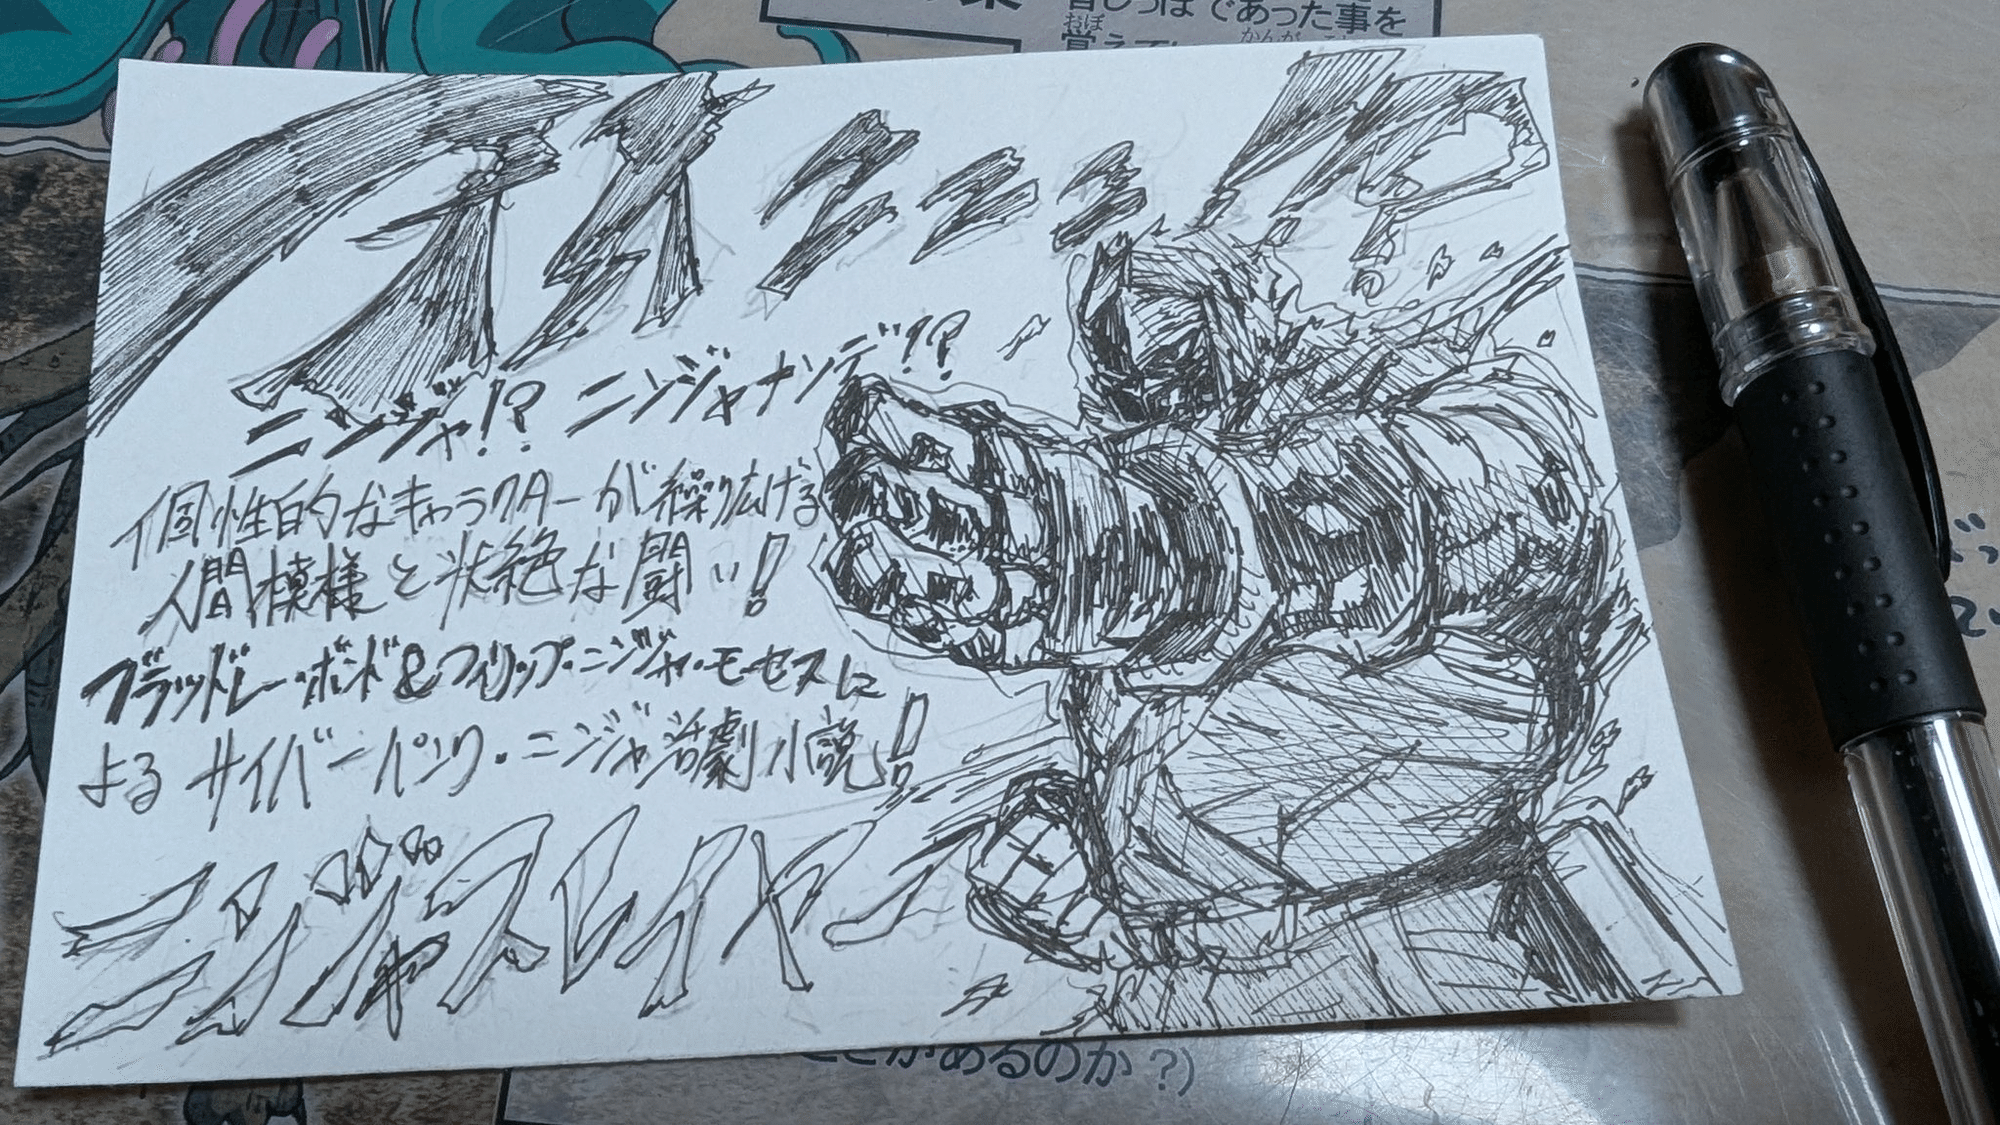 習しっぽであった事を
おぼ
かんが
覚えて
アイエエエエ
ニンジャ!? ニンジャナンデ!?
個性的なキャラクターが繰り広げる
人間模様と状絶な闘い!
ブラッドレー・ボンド&フィリップ・ニンジャ・モーゼスに
よるサイバーパンク・ニンジャ活劇小説!
ニンジャスレイヤー
ことがあるのか?)